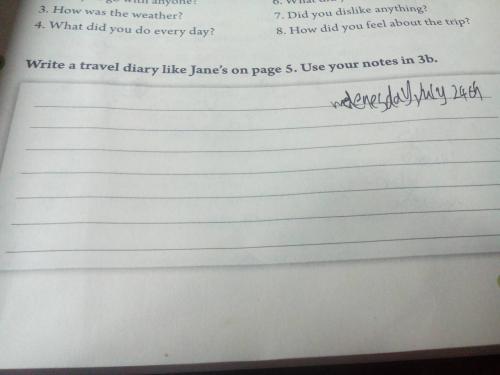 go with anyone?
3. How was the weather?
4. What did you do every day?
6. What did
7. Did you dislike anything?
8. How did you feel about the trip?
Write a travel diary like Jane's on page 5. Use your notes in 3b.
wedenesday, July 24th